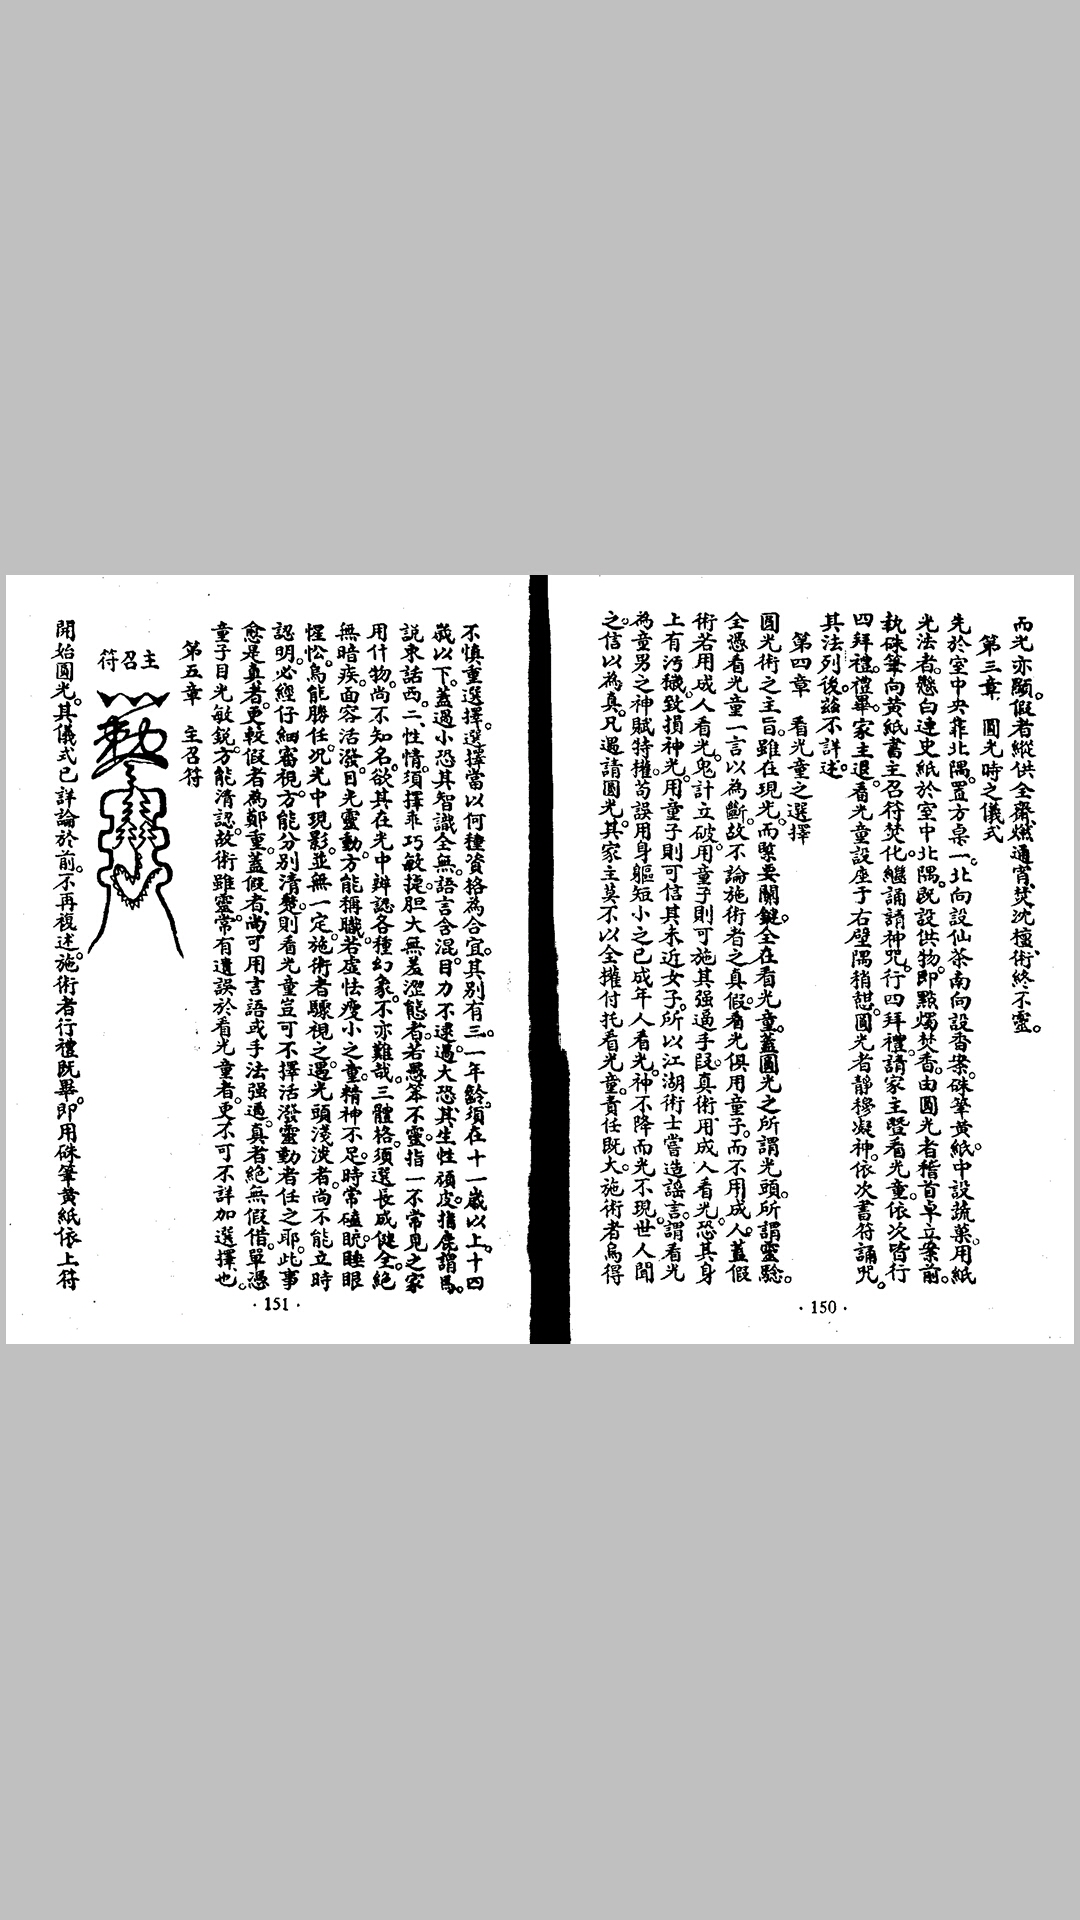 而光亦顯。假者縱供全齋燃通宵焚沈檀、術終不靈。
第三章　圓光時之儀式
先於室中央靠北隅。置方桌一。北向設仙茶南向設香案。硃筆黃紙。中設蔬菓。用紙
光法者。懸白連史紙於室中北隅。既設供物。即點燭焚香。由圓光者稽首卓立案前。
執硃筆向黃紙書主召符焚化。繼誦請神咒。行四拜禮。請家主暨看光童。依次皆行
四拜禮。禮畢。家主退。看光童設座于右壁隅稍憇。圓光者靜穆凝神。依次書符誦咒。
其法列後茲不詳述。
第四章　看光童之選擇
圓光術之主旨。雖在現光。而緊要關鍵。全在看光童。蓋圓光之所謂光頭。所謂靈驗。
全憑看光童一言以為斷。故不論施術者之真假。看光俱用童子。而不用成人。蓋假
術若用成人看光。鬼計立破。用童子則可施其强逼手段。真術用成人看光。恐其身
上有污穢。致損神光。用童子則可信其未近女子。所以江湖術士嘗造謠言。謂看光
為童男之神賦特權。苟誤用身軀短小之已成年人看光。神不降而光不現。世人聞
之信以為真。凡遇請圓光。其家主莫不以全權付托看光童。責任既大。施術者烏得
· 150 ·
不慎重選擇。選擇當以何種資格為合宜。其別有三。一年齡。須在十一歲以上。十四
歲以下。蓋過小恐其智識全無。語言含混。目力不逮。過大恐其生性頑皮。指鹿謂馬。
説東話西。二、性情。須擇乖巧敏捷。胆大無羞澀態者。若愚笨不靈。指一不常見之家
用什物。尚不知名。欲其在光中辨認各種幻象。不亦難哉。三體格。須選長成健全。絕
無暗疾。面容活潑。目光靈動。方能稱職。若虛怯瘦小之童。精神不足。時常磕眈。睡眼
惺忪。烏能勝任。况光中現影。並無一定。施術者驟視之。遇光頭淺淡者。尚不能立時
認明。必經仔細審視。方能分別清楚。則看光童豈可不擇活潑靈動者任之耶。此事
愈是真者。更較假者為鄭重。蓋假者、尚可用言語或手法强逼。真者絕無假借。單憑
童子目光敏銳。方能清認。故術雖靈。常有遺誤於看光童者。更不可不詳加選擇也。
第五章　主召符
主召符
開始圓光。其儀式已詳論於前。不再複述。施術者行禮既畢。即用硃筆黃紙依上符
· 151 ·